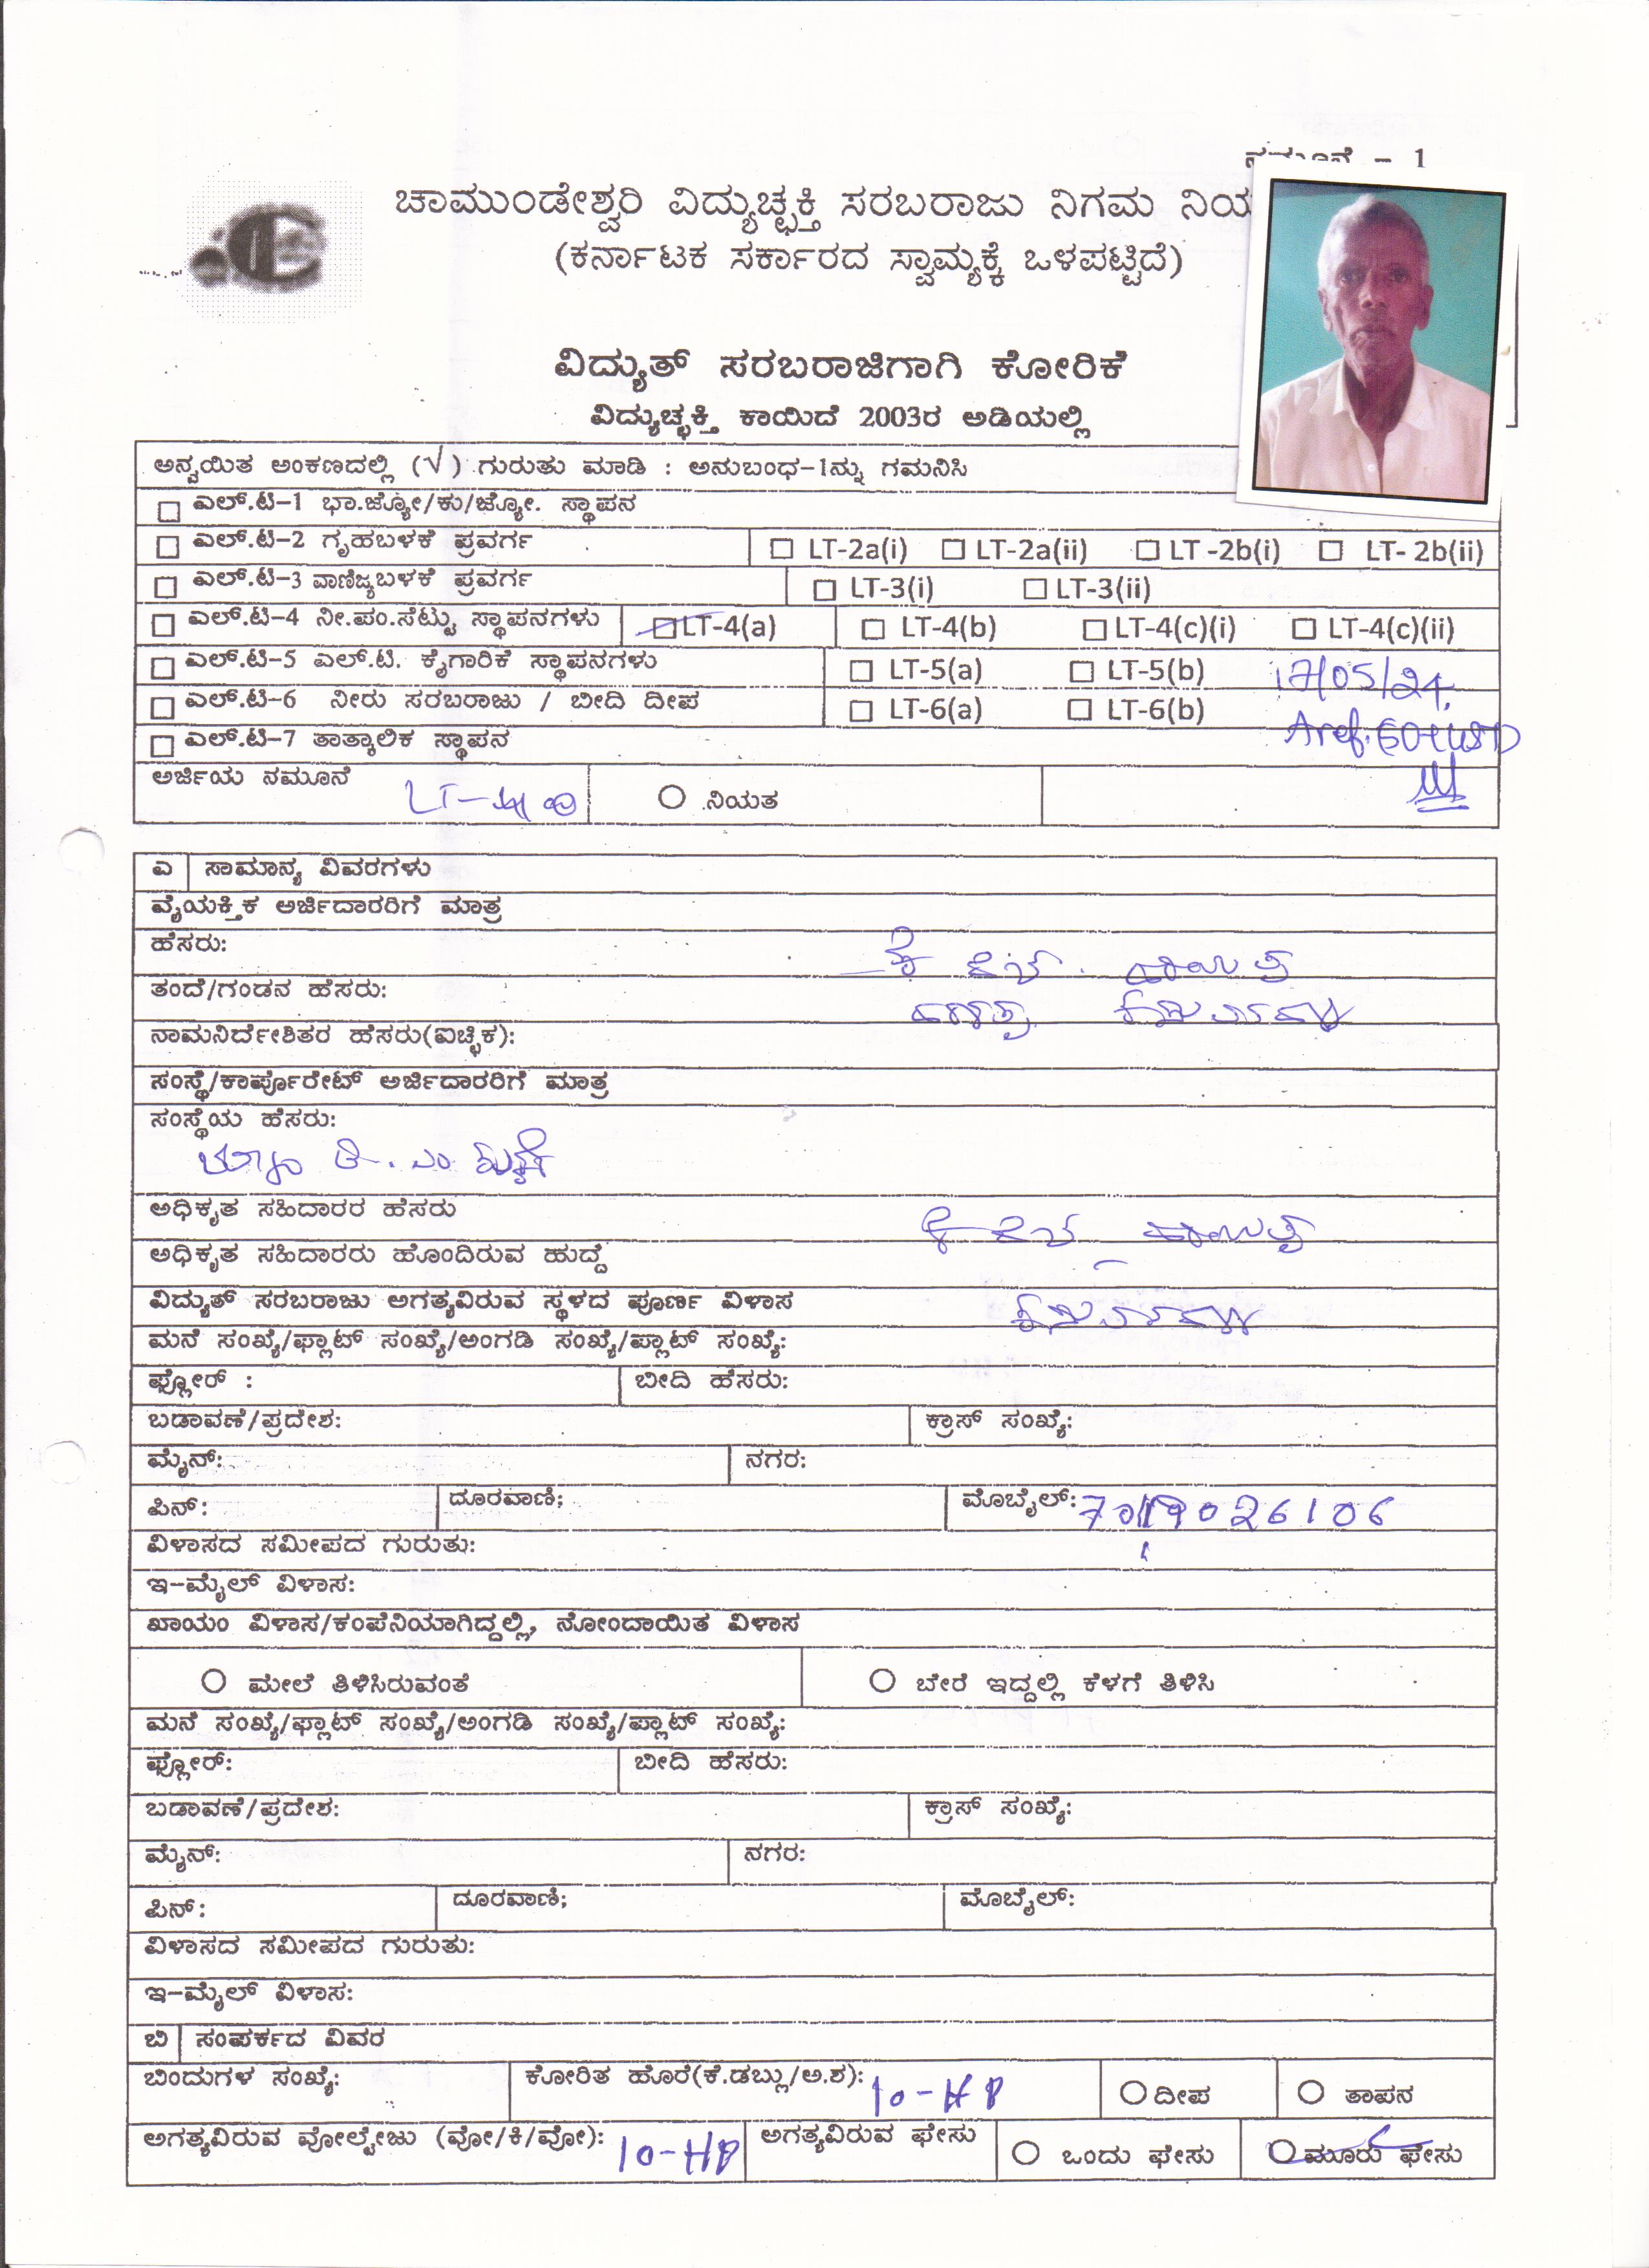 ನಮೂನೆ - 1
ಚಾಮುಂಡೇಶ್ವರಿ ವಿದ್ಯುಚ್ಛಕ್ತಿ ಸರಬರಾಜು ನಿಗಮ ನಿಯ
(ಕರ್ನಾಟಕ ಸರ್ಕಾರದ ಸ್ವಾಮ್ಯಕ್ಕೆ ಒಳಪಟ್ಟಿದೆ)
ವಿದ್ಯುತ್ ಸರಬರಾಜಿಗಾಗಿ ಕೋರಿಕೆ
ವಿದ್ಯುಚ್ಛಕ್ತಿ ಕಾಯಿದೆ 2003ರ ಅಡಿಯಲ್ಲಿ
ಅನ್ವಯಿತ ಅಂಕಣದಲ್ಲಿ (√) ಗುರುತು ಮಾಡಿ : ಅನುಬಂಧ-1ನ್ನು ಗಮನಿಸಿ
ಎಲ್.ಟಿ-1 ಭಾ.ಜ್ಯೋ/ಕು/ಜ್ಯೋ. ಸ್ಥಾಪನ
ಎಲ್.ಟಿ-2 ಗೃಹಬಳಕೆ ಪ್ರವರ್ಗ LT-2a(i) LT-2a(ii) LT -2b(i) LT- 2b(ii)
ಎಲ್.ಟಿ-3 ವಾಣಿಜ್ಯಬಳಕೆ ಪ್ರವರ್ಗ LT-3(i) LT-3(ii)
ಎಲ್.ಟಿ-4 ನೀ.ಪಂ.ಸೆಟ್ಟು ಸ್ಥಾಪನಗಳು LT-4(a) LT-4(b) LT-4(c)(i) LT-4(c)(ii)
ಎಲ್.ಟಿ-5 ಎಲ್.ಟಿ. ಕೈಗಾರಿಕೆ ಸ್ಥಾಪನಗಳು LT-5(a) LT-5(b) 17/05/24
ಎಲ್.ಟಿ-6 ನೀರು ಸರಬರಾಜು / ಬೀದಿ ದೀಪ LT-6(a) LT-6(b)
ಎಲ್.ಟಿ-7 ತಾತ್ಕಾಲಿಕ ಸ್ಥಾಪನ
ಅರ್ಜಿಯ ನಮೂನೆ ನಿಯತ
ಎ ಸಾಮಾನ್ಯ ವಿವರಗಳು
ವೈಯಕ್ತಿಕ ಅರ್ಜಿದಾರರಿಗೆ ಮಾತ್ರ
ಹೆಸರು:
ತಂದೆ/ಗಂಡನ ಹೆಸರು:
ನಾಮನಿರ್ದೇಶಿತರ ಹೆಸರು(ಐಚ್ಛಿಕ):
ಸಂಸ್ಥೆ/ಕಾರ್ಪೊರೇಟ್ ಅರ್ಜಿದಾರರಿಗೆ ಮಾತ್ರ
ಸಂಸ್ಥೆಯ ಹೆಸರು:
ಅಧಿಕೃತ ಸಹಿದಾರರ ಹೆಸರು
ಅಧಿಕೃತ ಸಹಿದಾರರು ಹೊಂದಿರುವ ಹುದ್ದೆ
ವಿದ್ಯುತ್ ಸರಬರಾಜು ಅಗತ್ಯವಿರುವ ಸ್ಥಳದ ಪೂರ್ಣ ವಿಳಾಸ
ಮನೆ ಸಂಖ್ಯೆ/ಫ್ಲಾಟ್ ಸಂಖ್ಯೆ/ಅಂಗಡಿ ಸಂಖ್ಯೆ/ಪ್ಲಾಟ್ ಸಂಖ್ಯೆ:
ಫ್ಲೋರ್ : ಬೀದಿ ಹೆಸರು:
ಬಡಾವಣೆ/ಪ್ರದೇಶ: ಕ್ರಾಸ್ ಸಂಖ್ಯೆ:
ಮೈನ್: ನಗರ:
ಪಿನ್: ದೂರವಾಣಿ; ಮೊಬೈಲ್: 7019026106
ವಿಳಾಸದ ಸಮೀಪದ ಗುರುತು:
ಇ-ಮೈಲ್ ವಿಳಾಸ:
ಖಾಯಂ ವಿಳಾಸ/ಕಂಪೆನಿಯಾಗಿದ್ದಲ್ಲಿ, ನೋಂದಾಯಿತ ವಿಳಾಸ
ಮೇಲೆ ತಿಳಿಸಿರುವಂತೆ ಬೇರೆ ಇದ್ದಲ್ಲಿ ಕೆಳಗೆ ತಿಳಿಸಿ
ಮನೆ ಸಂಖ್ಯೆ/ಫ್ಲಾಟ್ ಸಂಖ್ಯೆ/ಅಂಗಡಿ ಸಂಖ್ಯೆ/ಪ್ಲಾಟ್ ಸಂಖ್ಯೆ:
ಫ್ಲೋರ್: ಬೀದಿ ಹೆಸರು:
ಬಡಾವಣೆ/ಪ್ರದೇಶ: ಕ್ರಾಸ್ ಸಂಖ್ಯೆ:
ಮೈನ್: ನಗರ:
ಪಿನ್: ದೂರವಾಣಿ; ಮೊಬೈಲ್:
ವಿಳಾಸದ ಸಮೀಪದ ಗುರುತು:
ಇ-ಮೈಲ್ ವಿಳಾಸ:
ಬಿ ಸಂಪರ್ಕದ ವಿವರ
ಬಿಂದುಗಳ ಸಂಖ್ಯೆ: ಕೋರಿತ ಹೊರೆ(ಕೆ.ಡಬ್ಲ್ಯು/ಅ.ಶ): 10-HP ದೀಪ ತಾಪನ
ಅಗತ್ಯವಿರುವ ವೋಲ್ಟೇಜು (ವೋ/ಕಿ/ವೋ): 10-HP ಅಗತ್ಯವಿರುವ ಫೇಸು ಒಂದು ಫೇಸು ಮೂರು ಫೇಸು